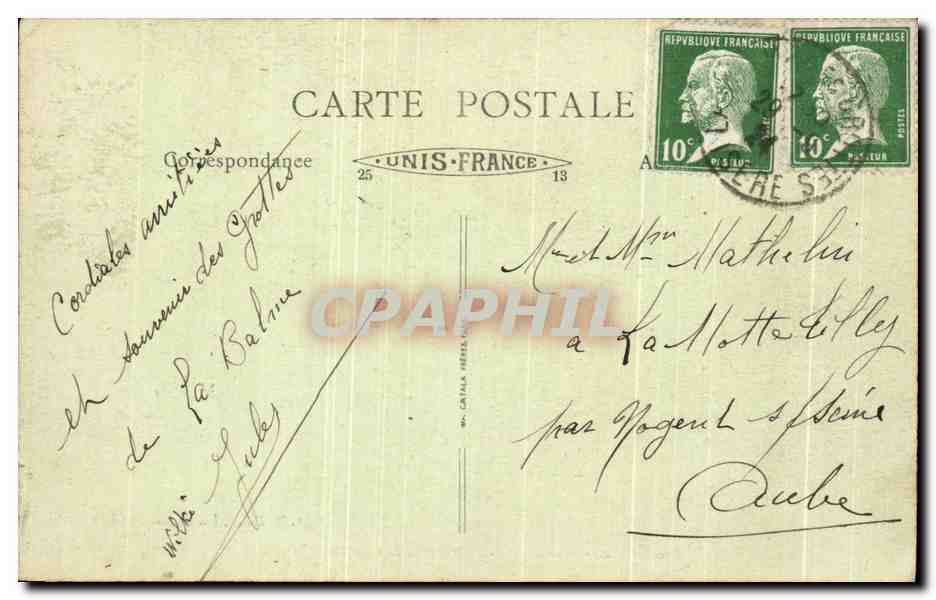 REPVBLIQUE FRANÇAISE
10c
PASTEUR
REPVBLIQUE FRANÇAISE
POSTES
10c
PASTEUR
CARTE POSTALE
Correspondance
UNIS-FRANCE
25
13
A
Cordiales amitiés
et souvenir des Grottes
de La Balme
Jules
CATALA FRÈRES
Mme et Mr Mathelin
à La Motte Tilly
par Nogent s/Seine
Aube
CPAPHIL